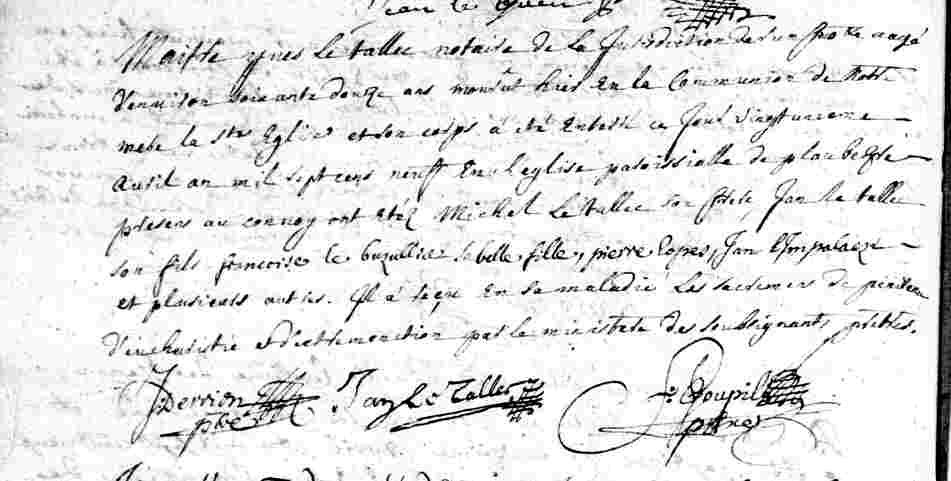 Jean le
Maistre yves Le tallec notaire de la Jurisdiction aagé
d'environ soixante douze ans mourut hier En la Communion de notre
mere la Ste Eglise et son corps a eté Enterré ce Jour vingtunieme
Avril an mil sept cens neuff En l'eglise paroissialle de ploubezre
présens au convoy ont Eté Michel Le tallec son frere, Jan le tallec
son fils francoise le buzullier sa belle fille, pierre lopes, Jan
et plusieurs autres. Il a receu En sa maladie Les sacremens de penitence
d'eucharistie et d'extremonction par le ministere des soubsignants prêtres.
Derrien Jan Le Tallec Poupil
pbre